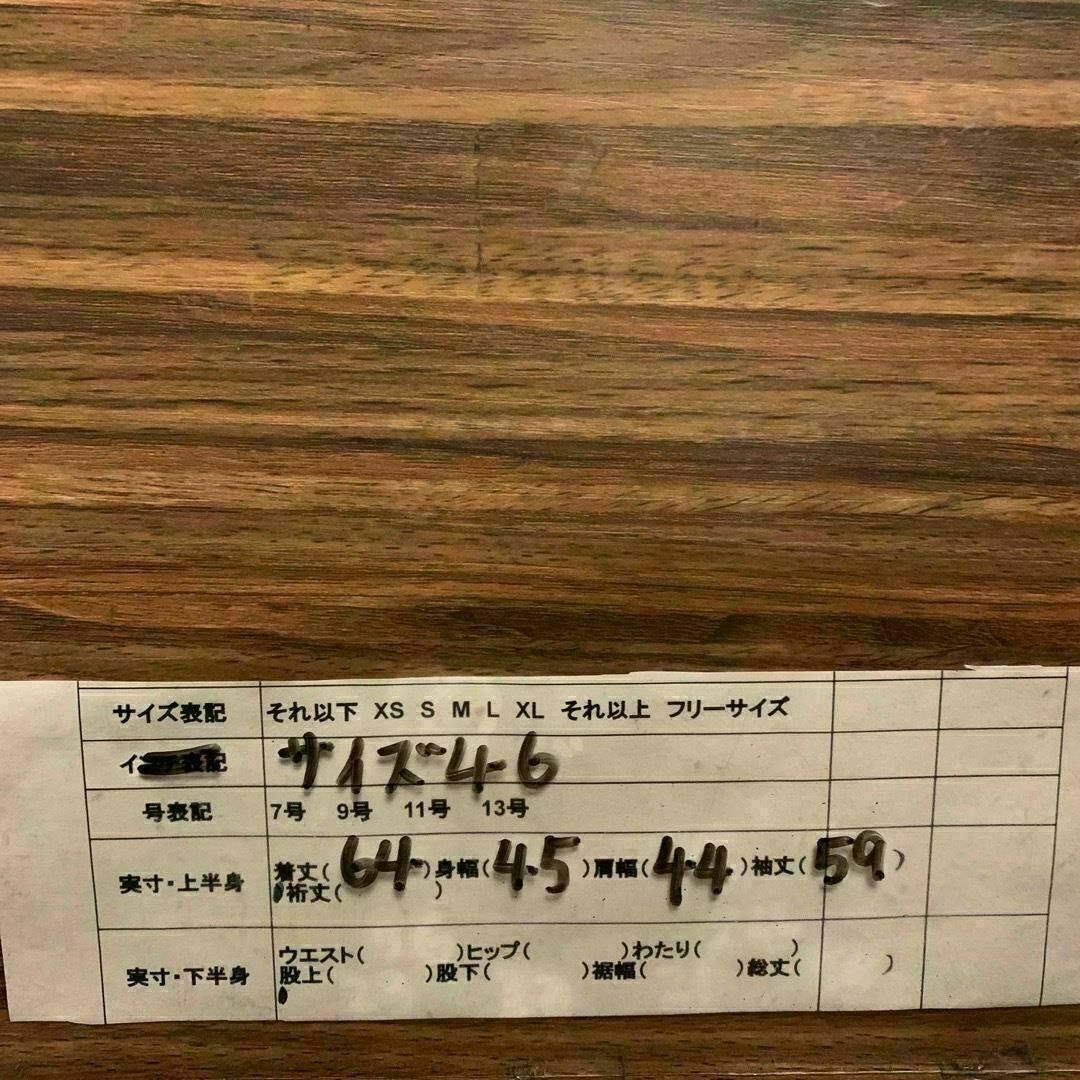 サイズ表記 それ以下 XS S M L XL それ以上 フリーサイズ
イ表記 サイズ46
号表記 7号 9号 11号 13号
実寸・上半身 着丈(64)身幅(45)肩幅(44)袖丈(59)
裄丈( )
実寸・下半身 ウエスト( )ヒップ( )わたり( )
股上( )股下( )裾幅( )総丈( )